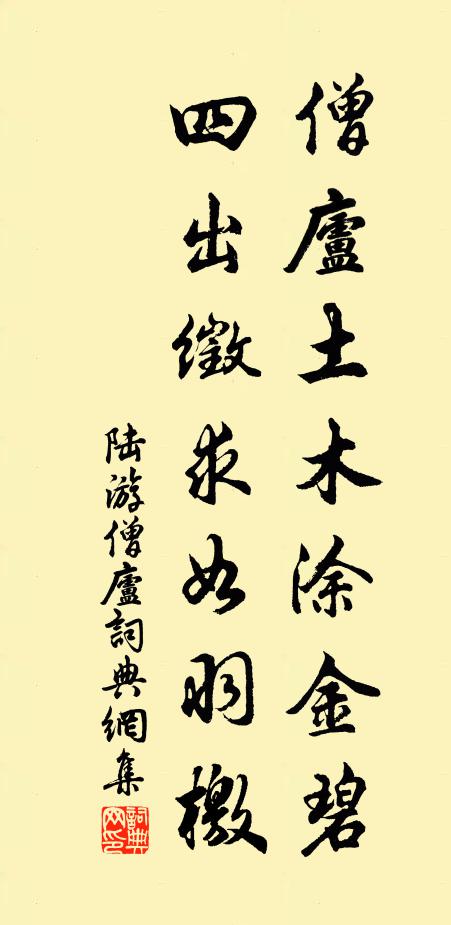 僧廬土木涂金碧
四出徵求如羽檄
陆游僧廬詞典網集
詞典网印